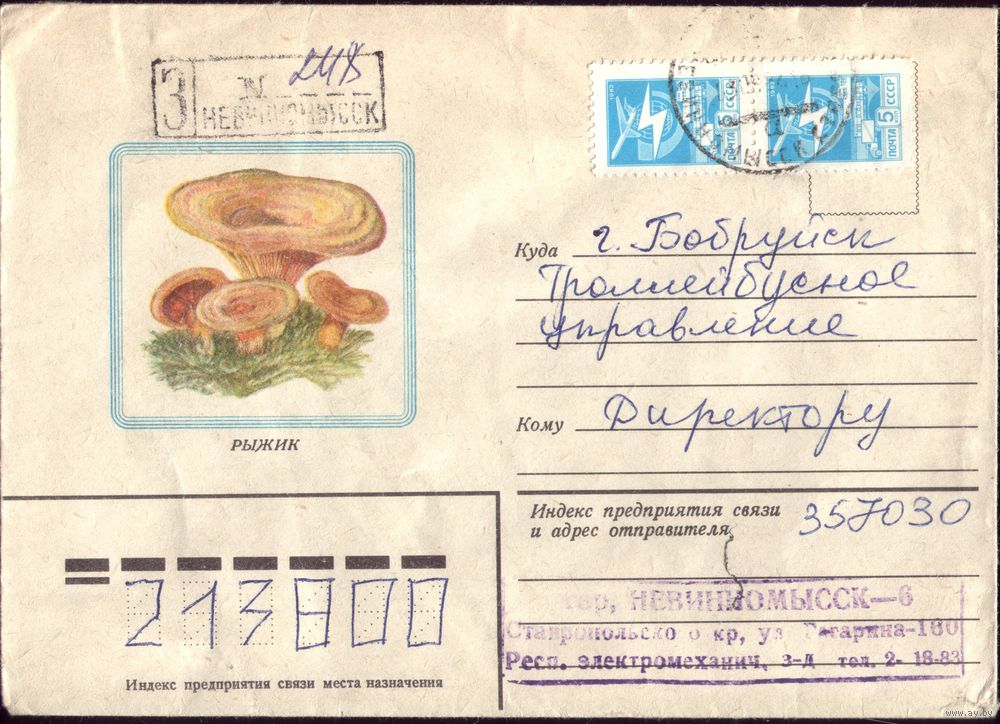 З N 248
НЕВИННОМЫССК
1982 ПОЧТА 5 СССР
1982 ПОЧТА 5 СССР
Куда г. Бобруйск
Троллейбусное
управление
Кому Директору
РЫЖИК
Индекс предприятия связи
и адрес отправителя 357030
213800
гор, НЕВИННОМЫССК—6
Ставропольско о кр, ул Гагарина-180
Респ. электромеханич, з-д тел. 2- 18-83
Индекс предприятия связи места назначения
www.ay.by